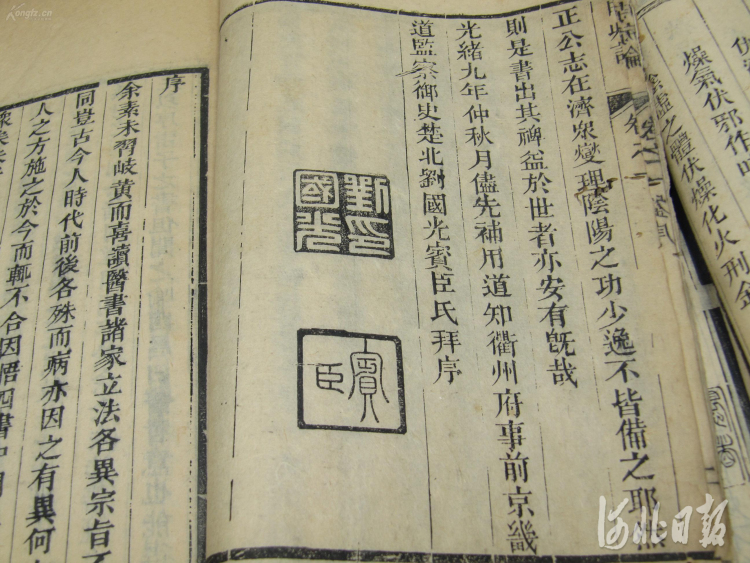 燥氣伏邪作
陰虛之體伏燥化火刑金
病論
正公志在濟眾燮理陰陽之功少逸不皆備之耶然
則是書出其裨益於世者亦安有旣哉
光緒九年仲秋月儘先補用道知衢州府事前京畿
道監察御史楚北劉國光賓臣氏拜序
劉印
國光
賓臣
序
余素未習岐黃而喜讀醫書諸家立法各異宗旨不
同豈古今人時代前後各殊而病亦因之有異何
人之方施之於今而輒不合因悟四書中
Kongfz.cn
河北日报